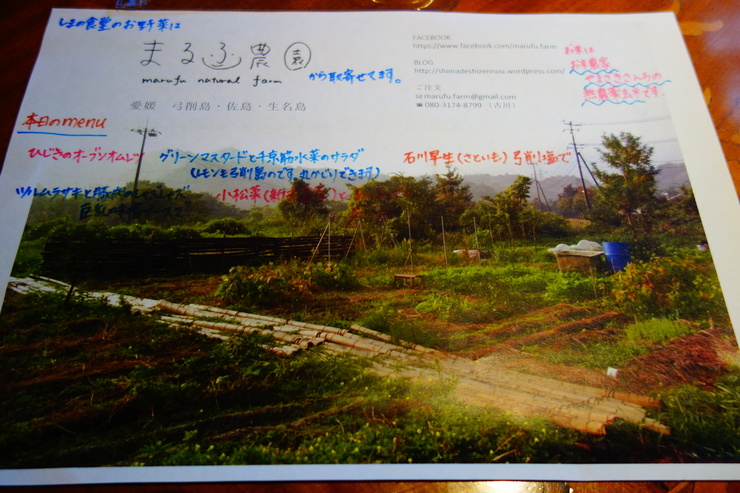 しまの食堂のお野菜は
まるふ農園
marufu natural farm
から取寄せてます。
愛媛 弓削島・佐島・生名島
FACEBOOK
https://www.facebook.com/marufu.farm
BLOG
http://shimadeshizennou.wordpress.com/
ご注文
✉marufu.farm@gmail.com
☎080-3174-8799 （古川）
お米は
お米農家
やまざきさんちの
無農薬玄米です。
本日のmenu
ひじきのオーブンオムレツ
グリーンマスタードと千京筋水菜のサラダ
(レモンも弓削島のです。丸かじりできます)
石川早生(さといも)弓削塩で
ツルムラサキと豚肉の
小松菜